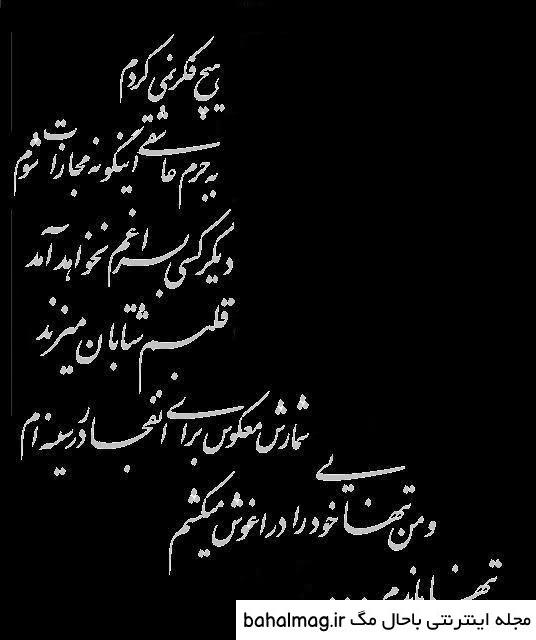 هیچ فکر نمی کردم
به جرم عاشقی اینگونه مجازات شوم
دیگر کسی بسراغم نخواهد آمد
قلبم شتابان میزند
شمارش معکوس برای انفجار در سینه ام
و من تنهایی خود را در اغوش میکشم
تنها
مجله اینترنتی باحال مگ bahalmag.ir